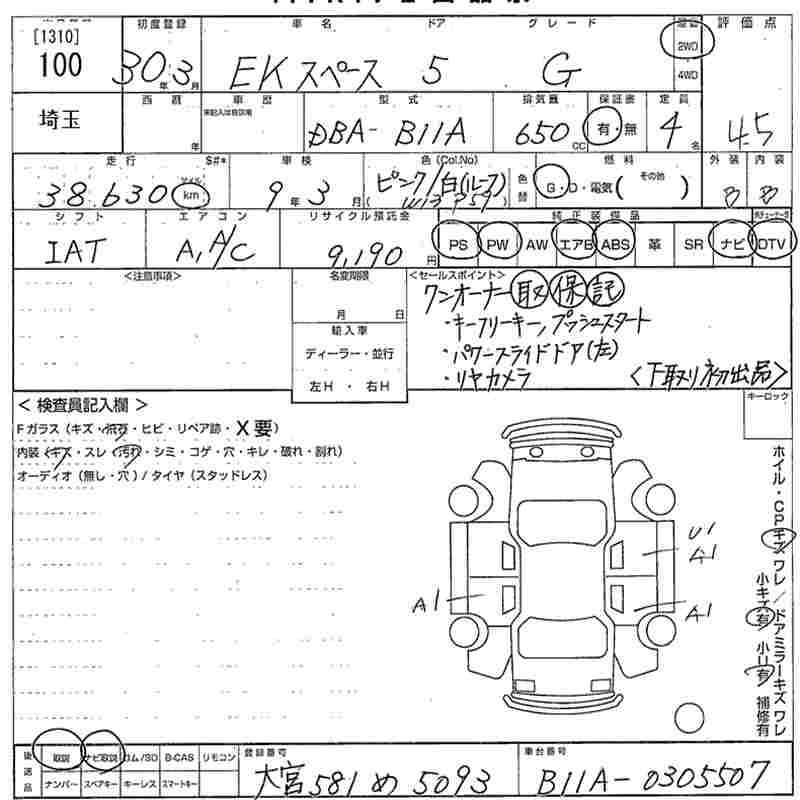 [1310]
100
初度登録
車名
ドア
グレード
評価点
30年3月
EKスペース
5
G
2WD
4WD
埼玉
西暦
年
車歴
未記入は自家用
型式
排気量
保証書
定員
DBA-B11A
650 CC
有・無
4名
4.5
走行
S#*
車検
色(Col.No)
色替
燃料
外装
内装
38,630
マイル
km
9年3月
ピンク/白(ルーフ)
G・D・電気( その他 )
B
B
シフト
エアコン
リサイクル預託金
純正装備品
IAT
A,A/C
9,190円
PS
PW
AW
エアB
ABS
革
SR
ナビ
DTV
<注意事項>
名変期限
月 日
輸入車
ディーラー・並行
左H ・ 右H
<セールスポイント>
ワンオーナー 取 保 記
・キーフリーキー,プッシュスタート
・パワースライドドア(左)
・リヤカメラ
<下取り初出品>
<検査員記入欄>
Fガラス(キズ・飛石・ヒビ・リペア跡・X要)
内装(キズ・スレ・汚れ・シミ・コゲ・穴・キレ・破れ・割れ)
オーディオ(無し・穴)/タイヤ(スタッドレス)
キーロック
ホイル・CPキズ ワレ/ドアミラーキズ ワレ
小キズ有 小U有 補修有
U1
A1
A1
A1
後送品
取説
ナビ取説
ロム/SD
B-CAS
リモコン
ナンバー
スペアキー
キーレス
スマートキー
登録番号
大宮 581 め 5093
車台番号
B11A-0305507